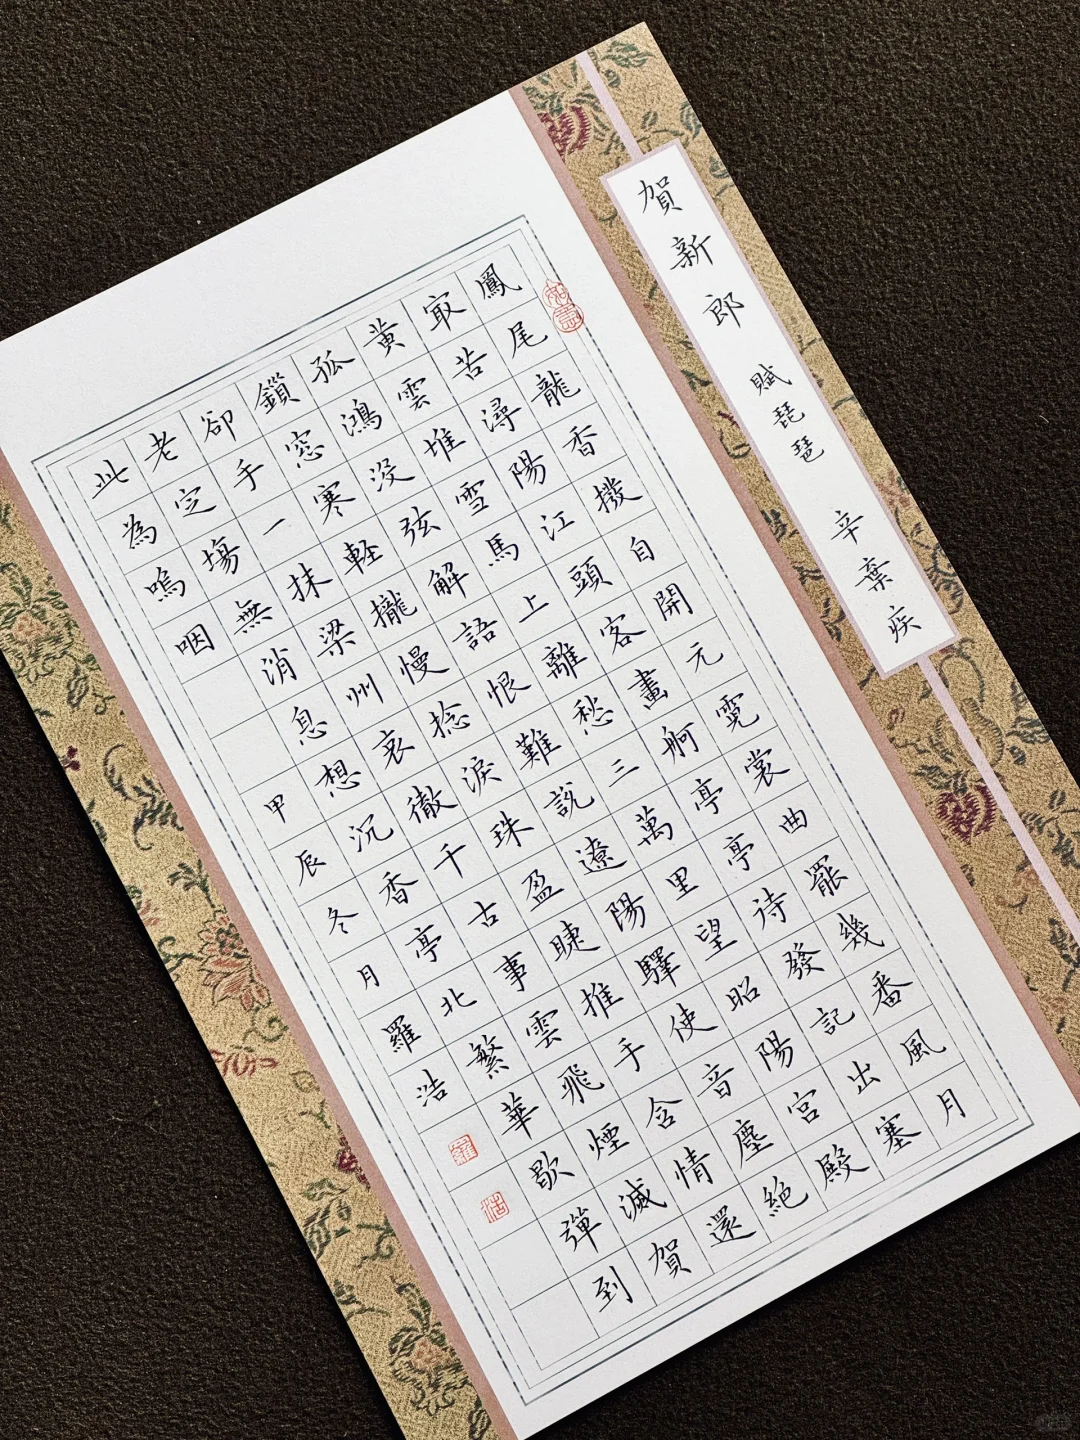 賀新郎 賦琵琶 辛棄疾
鳳尾龍香撥自開元霓裳曲罷幾番風月
冣苦潯陽江頭客畫舸亭亭待發記出塞
黃雲堆雪馬上離愁三萬里望昭陽宮殿
孤鴻沒弦解語恨難說遼陽驛使音塵絕
鎖窓寒輕攏慢捻淚珠盈睫推手含情還
卻手一抹梁州哀徹千古事雲飛煙滅賀
老定塲無消息想沉香亭北繁華歇彈到
此為嗚咽 甲辰冬月羅浩
如意
羅
浩